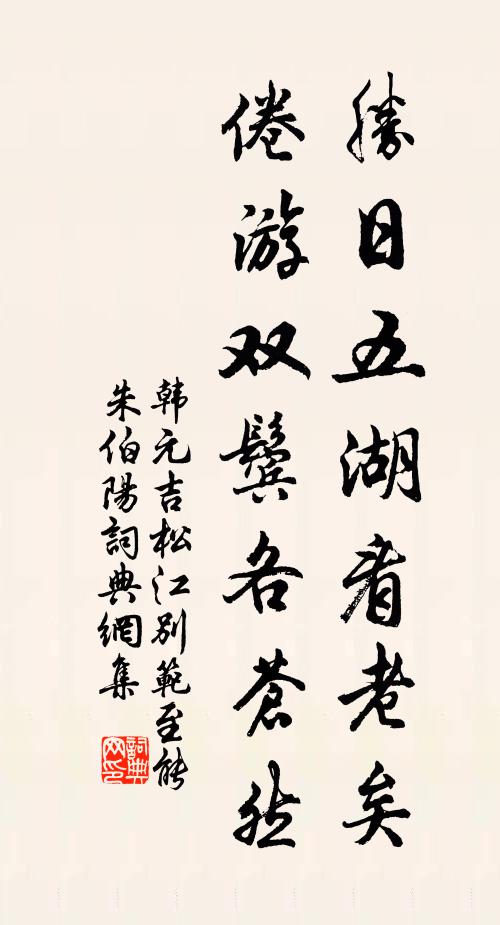 勝日五湖看老矣
倦游双鬓各蒼然
韩元吉松江别範至能
朱伯陽詞典網集
詞典网印